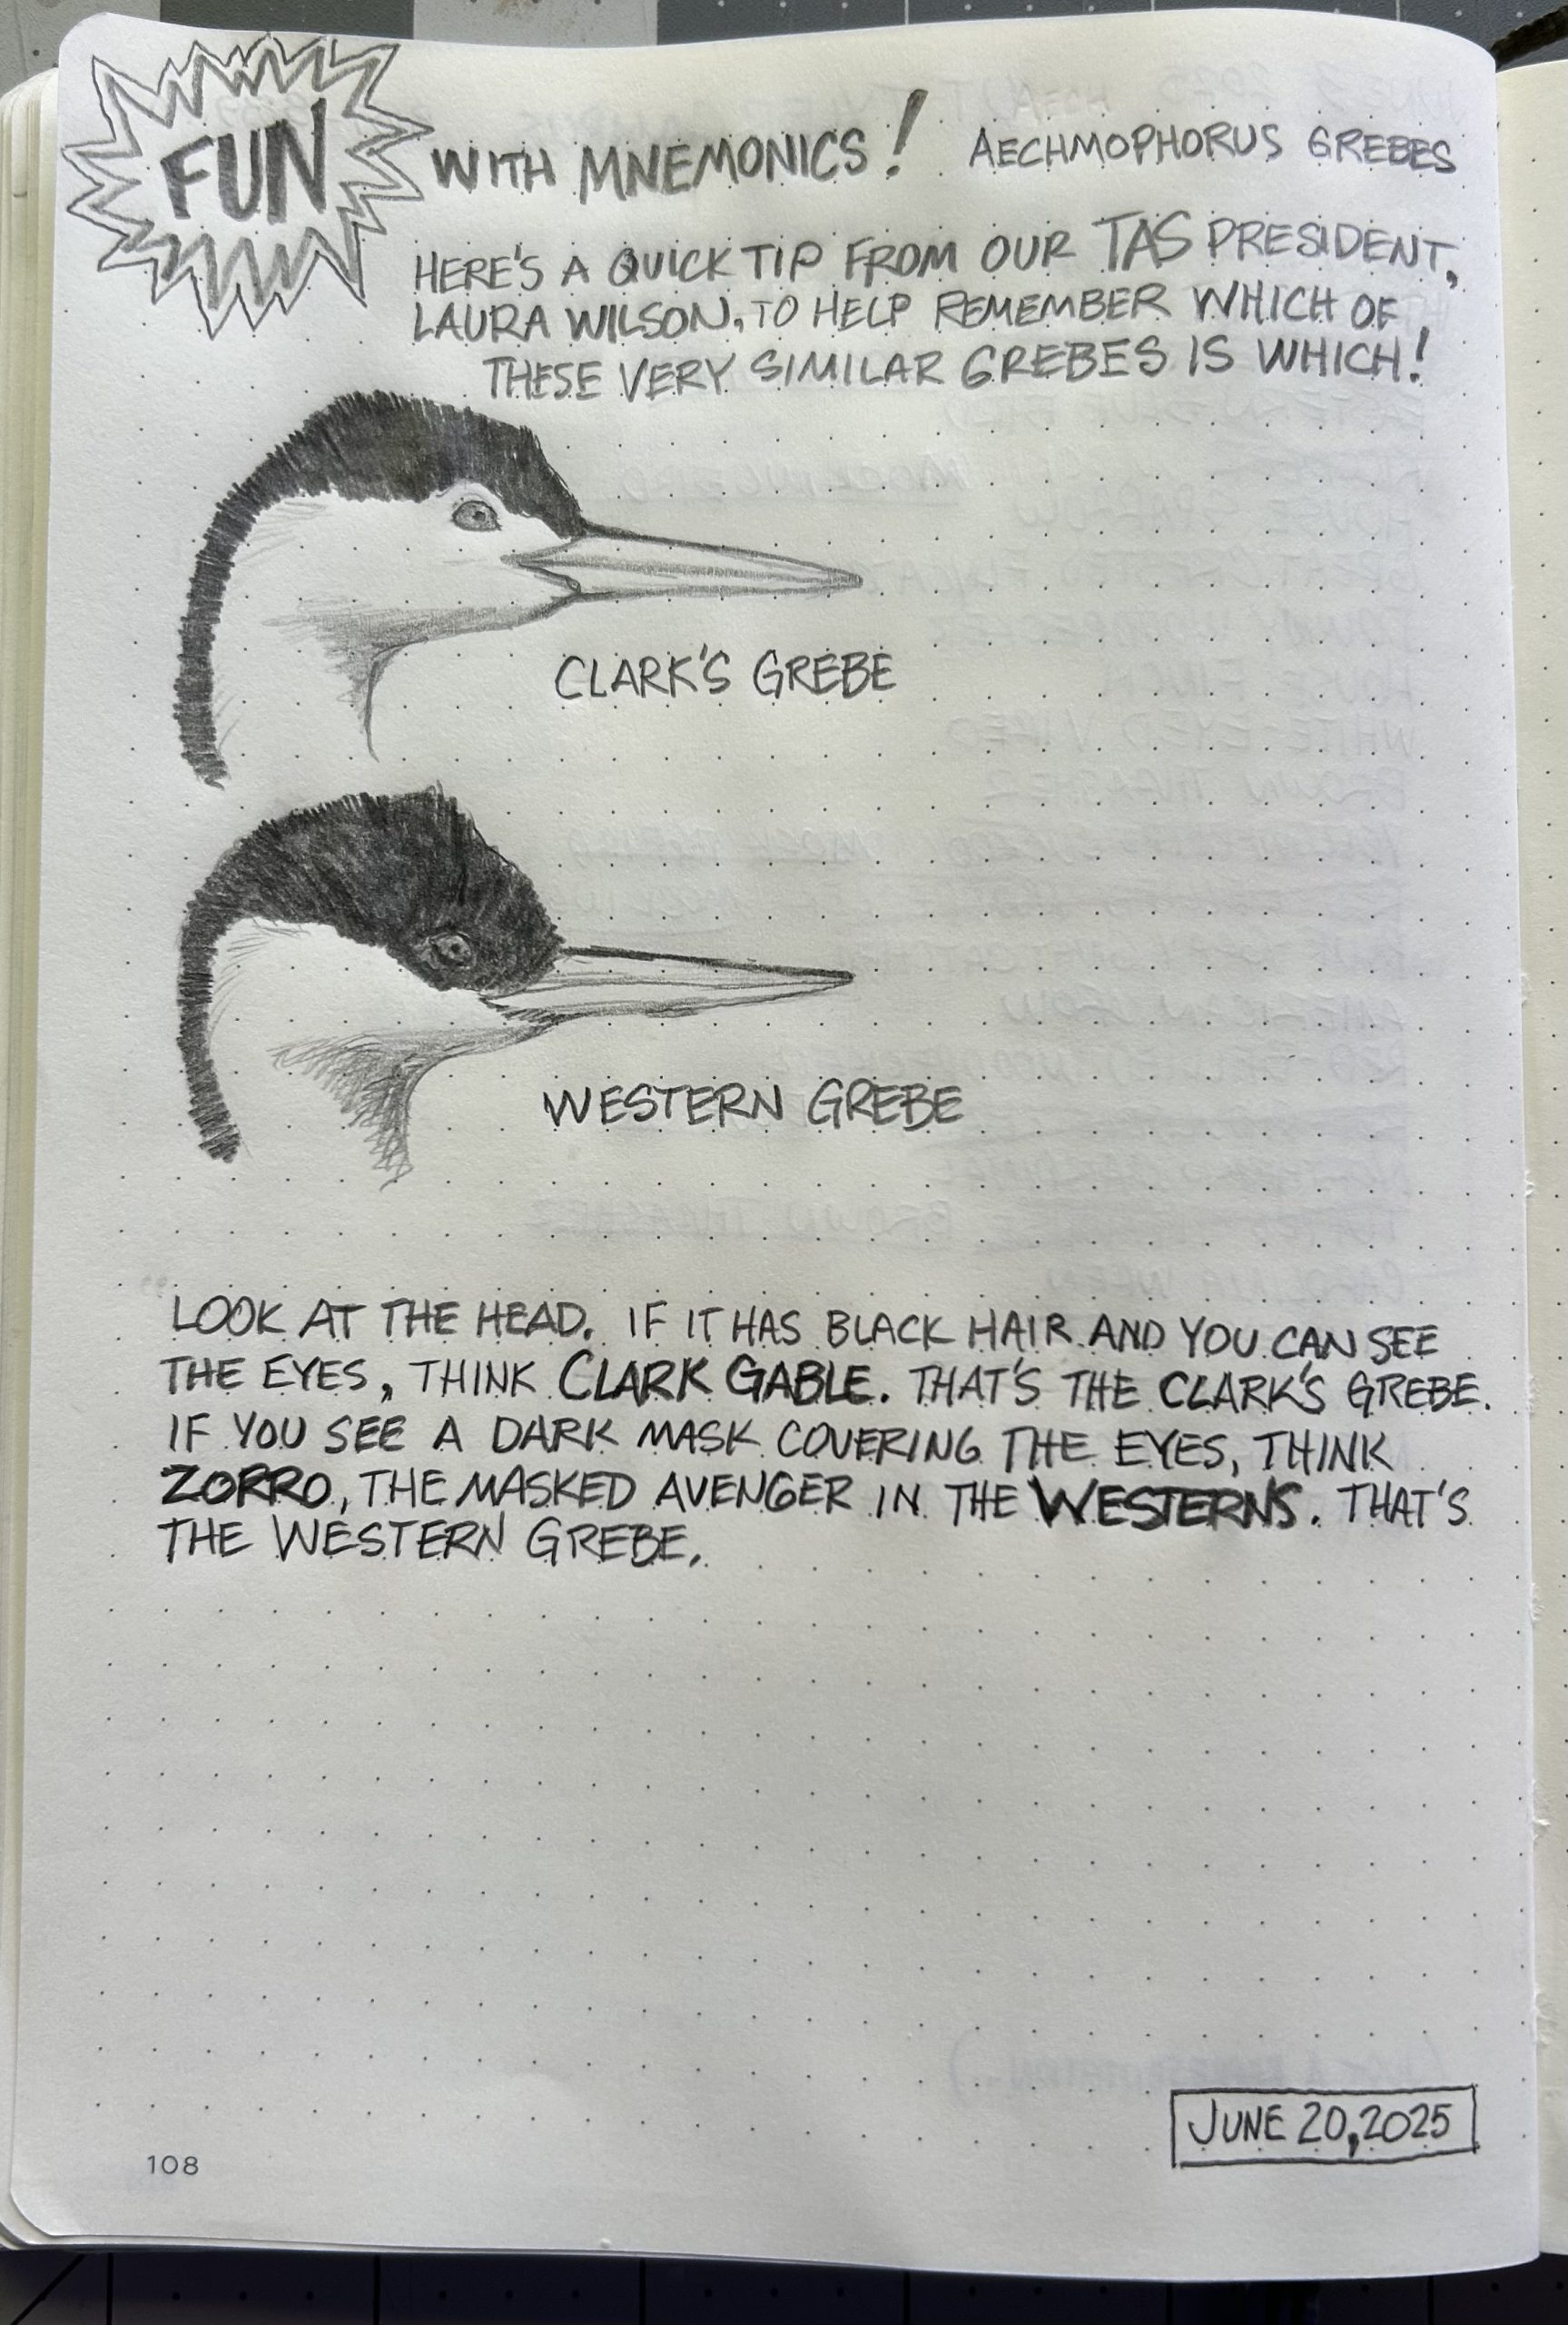 FUN WITH MNEMONICS! AECHMOPHORUS GREBES
HERE'S A QUICK TIP FROM OUR TAS PRESIDENT,
LAURA WILSON, TO HELP REMEMBER WHICH OF
THESE VERY SIMILAR GREBES IS WHICH!
CLARK'S GREBE
WESTERN GREBE
LOOK AT THE HEAD. IF IT HAS BLACK HAIR AND YOU CAN SEE
THE EYES, THINK CLARK GABLE. THAT'S THE CLARK'S GREBE.
IF YOU SEE A DARK MASK COVERING THE EYES, THINK
ZORRO, THE MASKED AVENGER IN THE WESTERNS. THAT'S
THE WESTERN GREBE.
JUNE 20, 2025
108